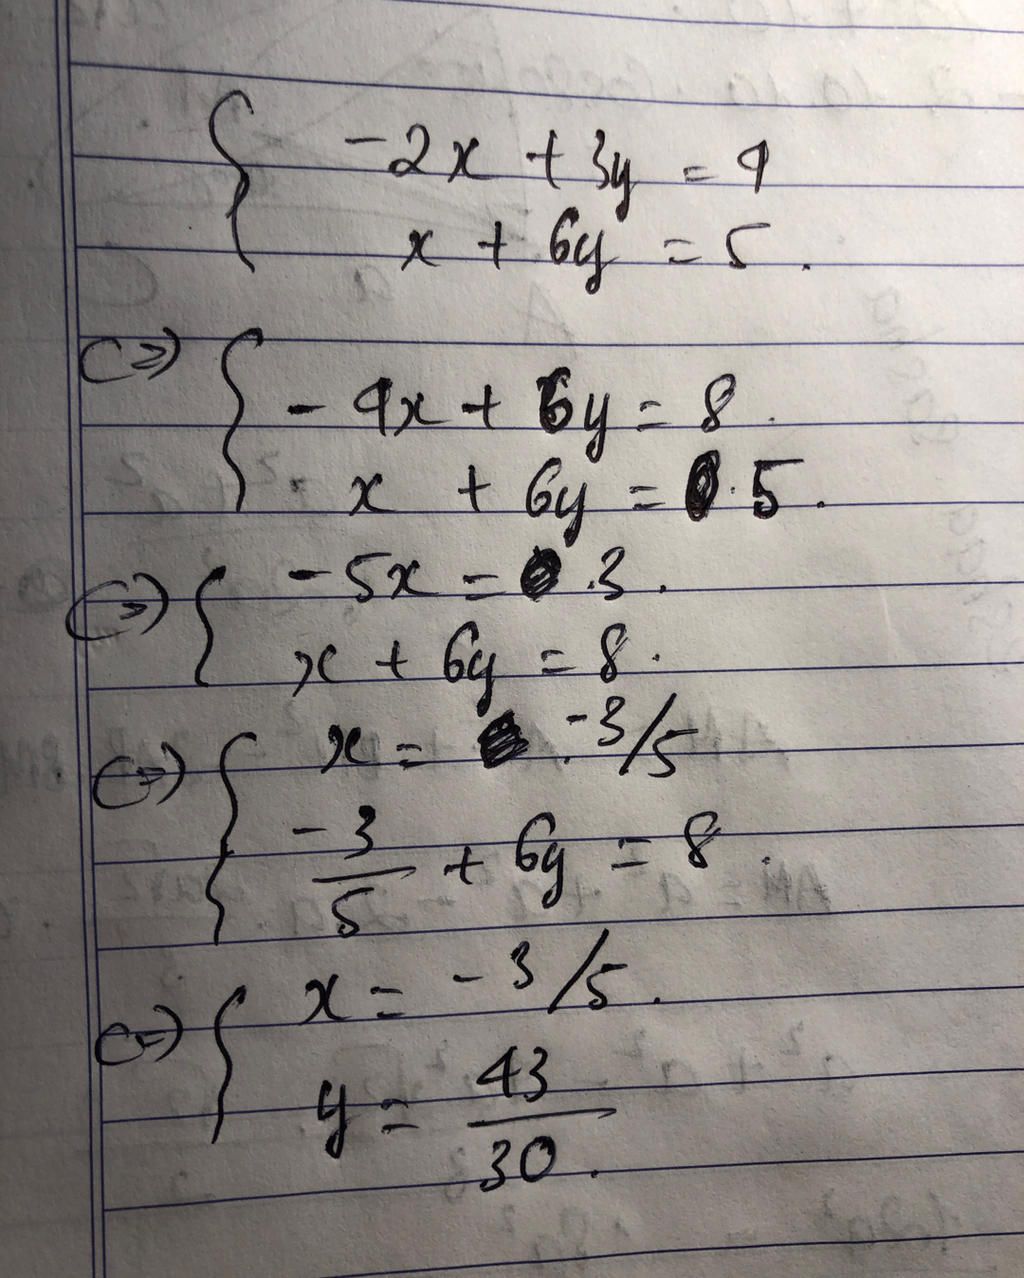 -2x + 3y = 4
x + 6y = 5.
<=> { -4x + 6y = 8.
x + 6y = 5.
<=> { -5x = 3.
x + 6y = 8.
<=> { x = -3/5
-3/5 + 6y = 8.
<=> { x = -3/5.
y = 43/30.